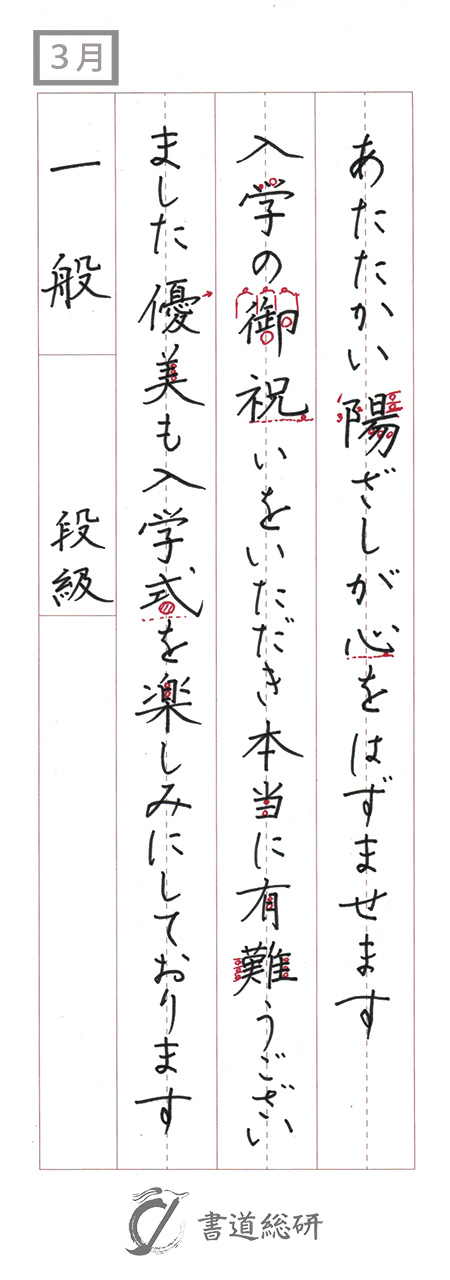 3月
あたたかい陽ざしが心をはずませます
入学の御祝いをいただき本当に有難うござい
ました優美も入学式を楽しみにしております
一般
段級
書道総研